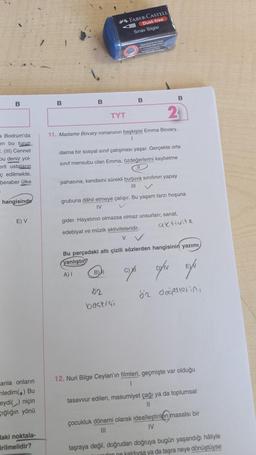 FABER-CASTELL
Dust-free
Sınav Silgisi
B
B
B
B
B
TYT
2
a Bodrum'da
en bu
(III) Cennet
bu deniz yol-
erli ustaların
ç edilmekte,
beraber ülke
hangisinde
E) V
11. Madame Bovary romanının başkişisi Emma Bovary,
I
daima bir sosyal sınıf çatışması yaşar. Gerçekte orta
sınıf mensubu olan Emma, özdeğerlerini kaybetme
II
pahasına, kendisini sürekli burjuva sınıfının yapay
III
grubuna dâhil etmeye çalışır. Bu yaşam tarzı hoşuna
IV
gider. Hayatının olmazsa olmaz unsurları; sanat,
edebiyat ve müzik aktiviteleridir.
V
aktivite
Bu parçadaki altı çizili sözlerden hangisinin yazımı
yanlıştır?
A) I
B) II
C) III
D) IV
E) V
öz
başkişi
öz değerlerini
arıla onların
nledim(•) Bu
eydi(,) niçin
çığlığın yönü
daki noktala-
irilmelidir?
12. Nuri Bilge Ceylan'ın filmleri, geçmişte var olduğu
I
tasavvur edilen, masumiyet çağı ya da toplumsal
II
çocukluk dönemi olarak idealleştirilen masalsı bir
III
IV
taşraya değil, doğrudan doğruya bugün yaşandığı hâliyle
ya da taşra neye dönüştüyse